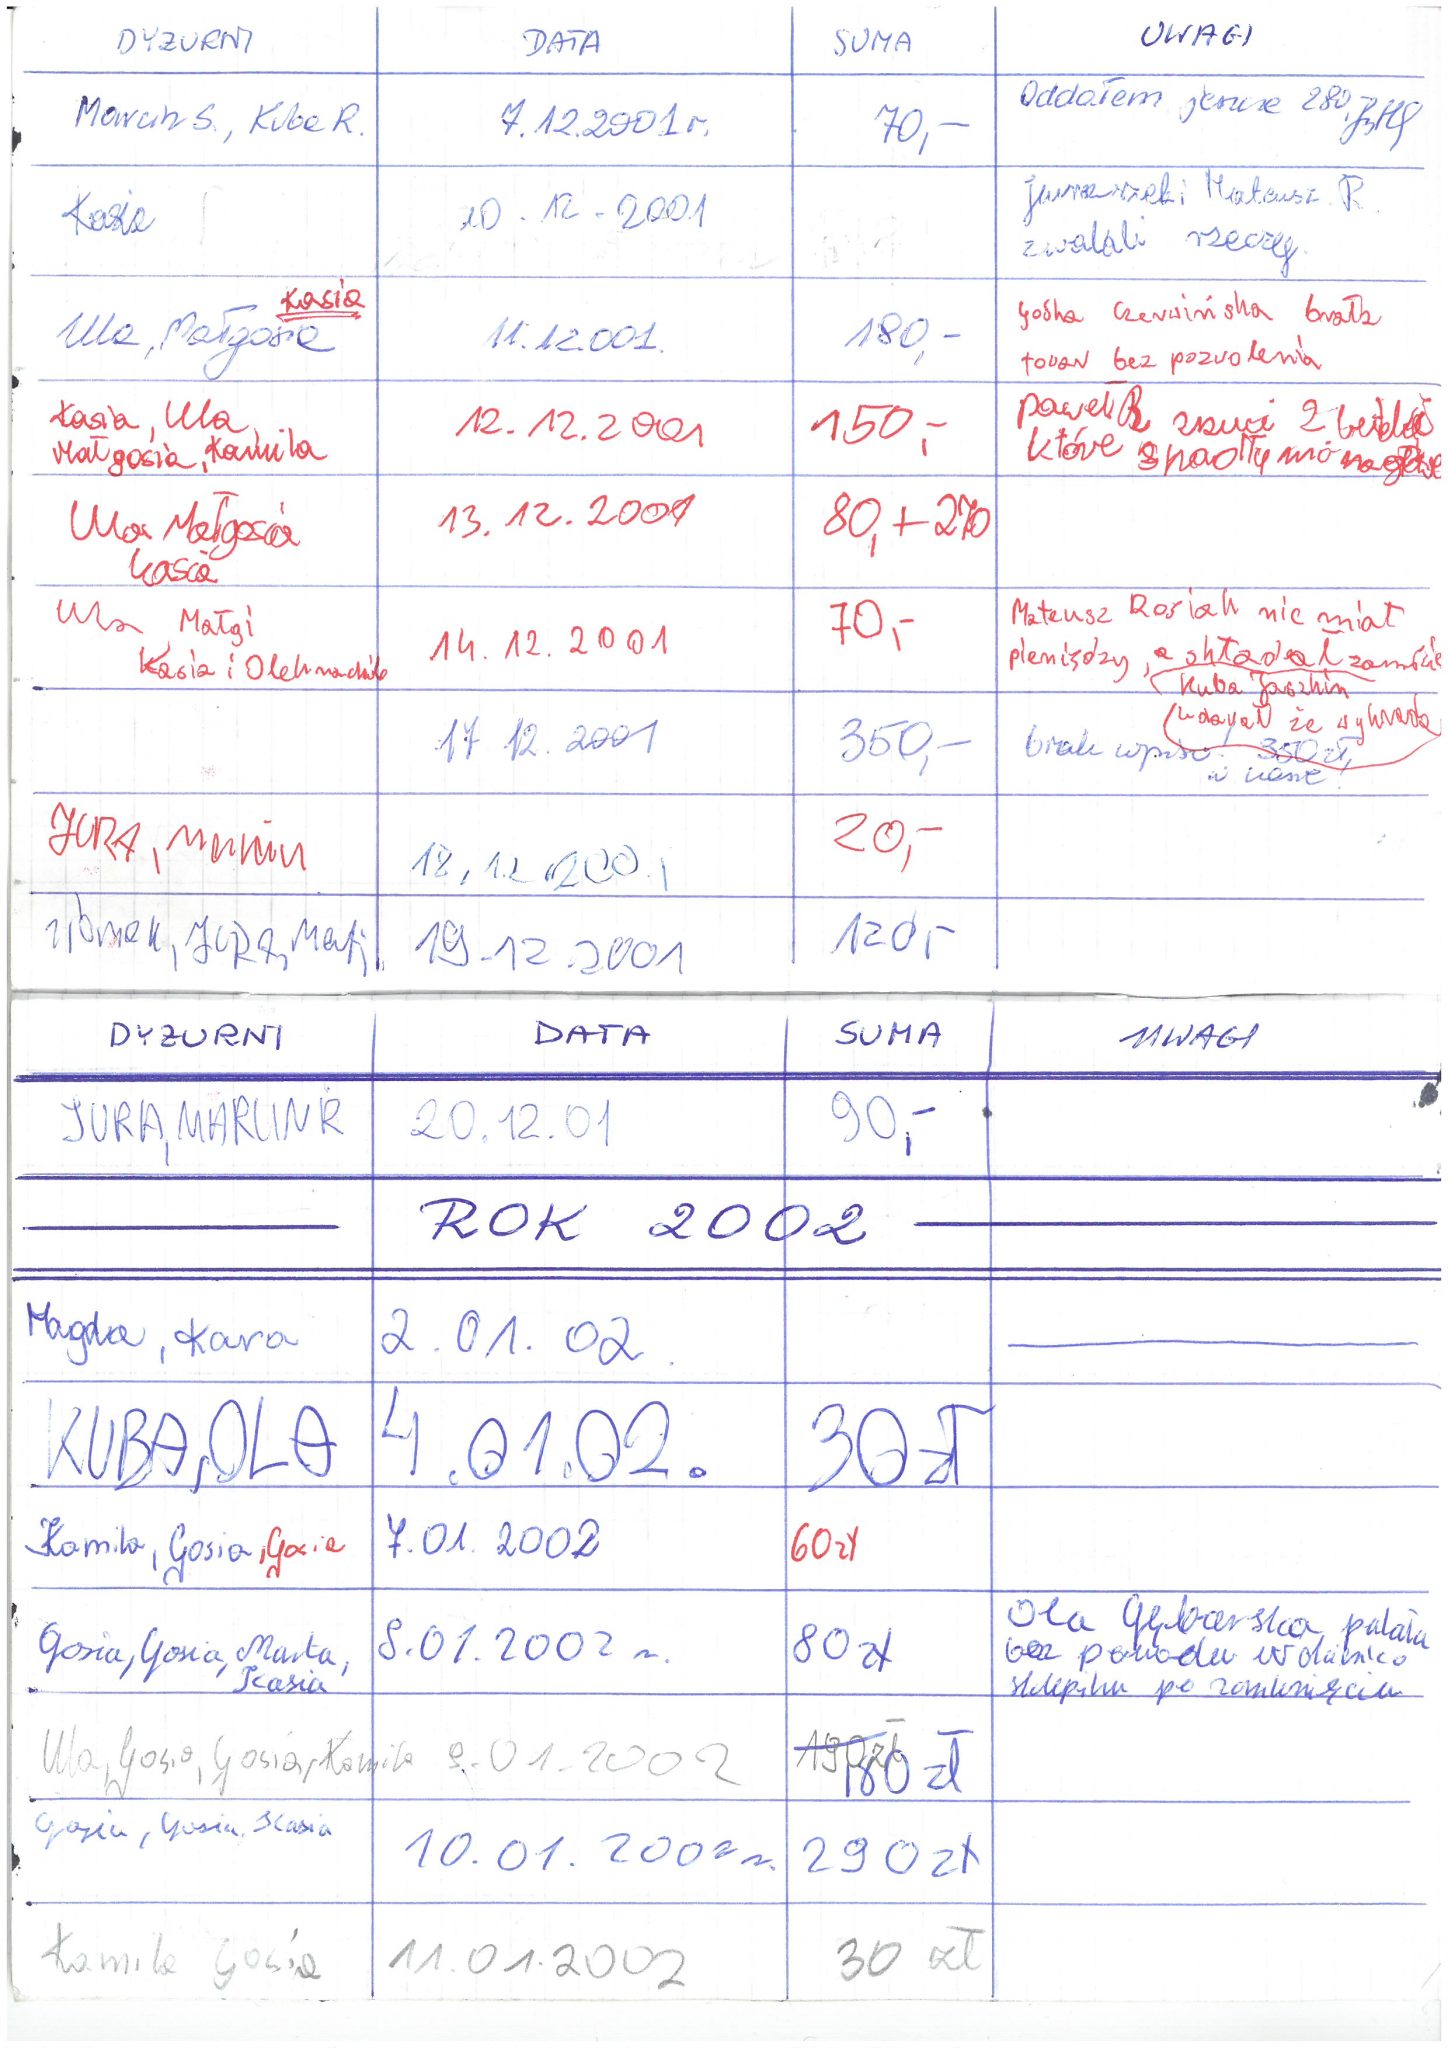 DYZURNI DATA SUMA UWAGI
Marcin S., Kuba R. 7.12.2001 r. 70,- Oddałem jeszcze 280,
Kasia 10.12-2001 i Mateusz R.
zwalali rzeczy.
Kasia
Ula, Małgosia 11.12.001. 180,- Gośka Czerwińska brała
towar bez pozwolenia
Kasia, Ula, 12.12.2001 150,- Paweł R 2
Małgosia, Kamila które spadły mu na głowe
Ula Małgosia 13.12.2001 80,+270
Kasia
Ula Małgi 14.12.2001 70,- Mateusz Rosiak nie miał
Kasia i pieniędzy, a składał
Kuba Jaszkin
że wykrada
17 12.2001 350,- brak wpisu! 350 zł,
w kasie!
JURA, 12.12.2001 20,-
JURA, 19-12.2001 120,-
DYZURNI DATA SUMA UWAGI
JURA, MARCIN R 20.12.01 90,-
ROK 2002
Magda, Kara 2.01.02.
KUBA, OLA 4.01.02. 30 zł
Kamila, Gosia, Gosia 7.01.2002 60 zł
Gosia, Gosia, Marta, 8.01.2002 r. 80 zł Ola
Kasia bez powodu
sklepiku po zamknięciu
Ula, Gosia, Gosia, Kamila 9.01.2002 190 zł 180 zł
Gosia, Gosia, Kasia 10.01.2002 r. 290 zł
Kamila Gosia 11.01.2002 30 zł